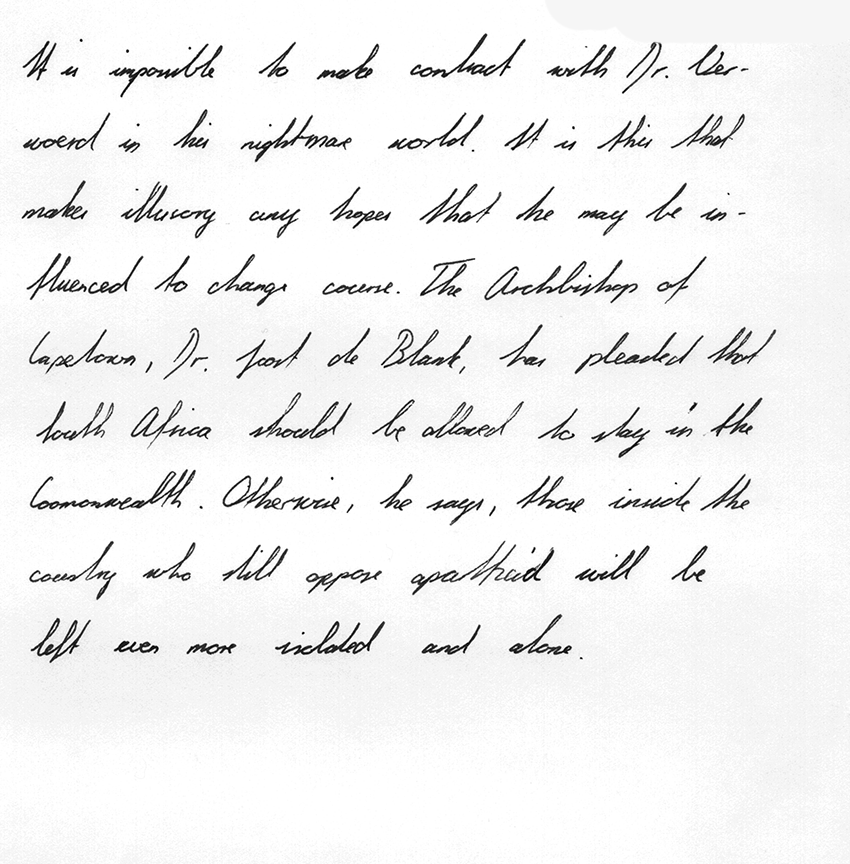 It is impossible to make contract with Dr. Ver-
woerd in his nightmare world. It is this that
makes illusory any hopes that he may be in-
fluenced to change course. The Archbishop of
Capetown, Dr. Joost de Blank, has pleaded that
South Africa should be allowed to stay in the
Coomonwealth. Otherwise, he says, those inside the
country who still oppose apartheid will be
left even more isolated and alone.